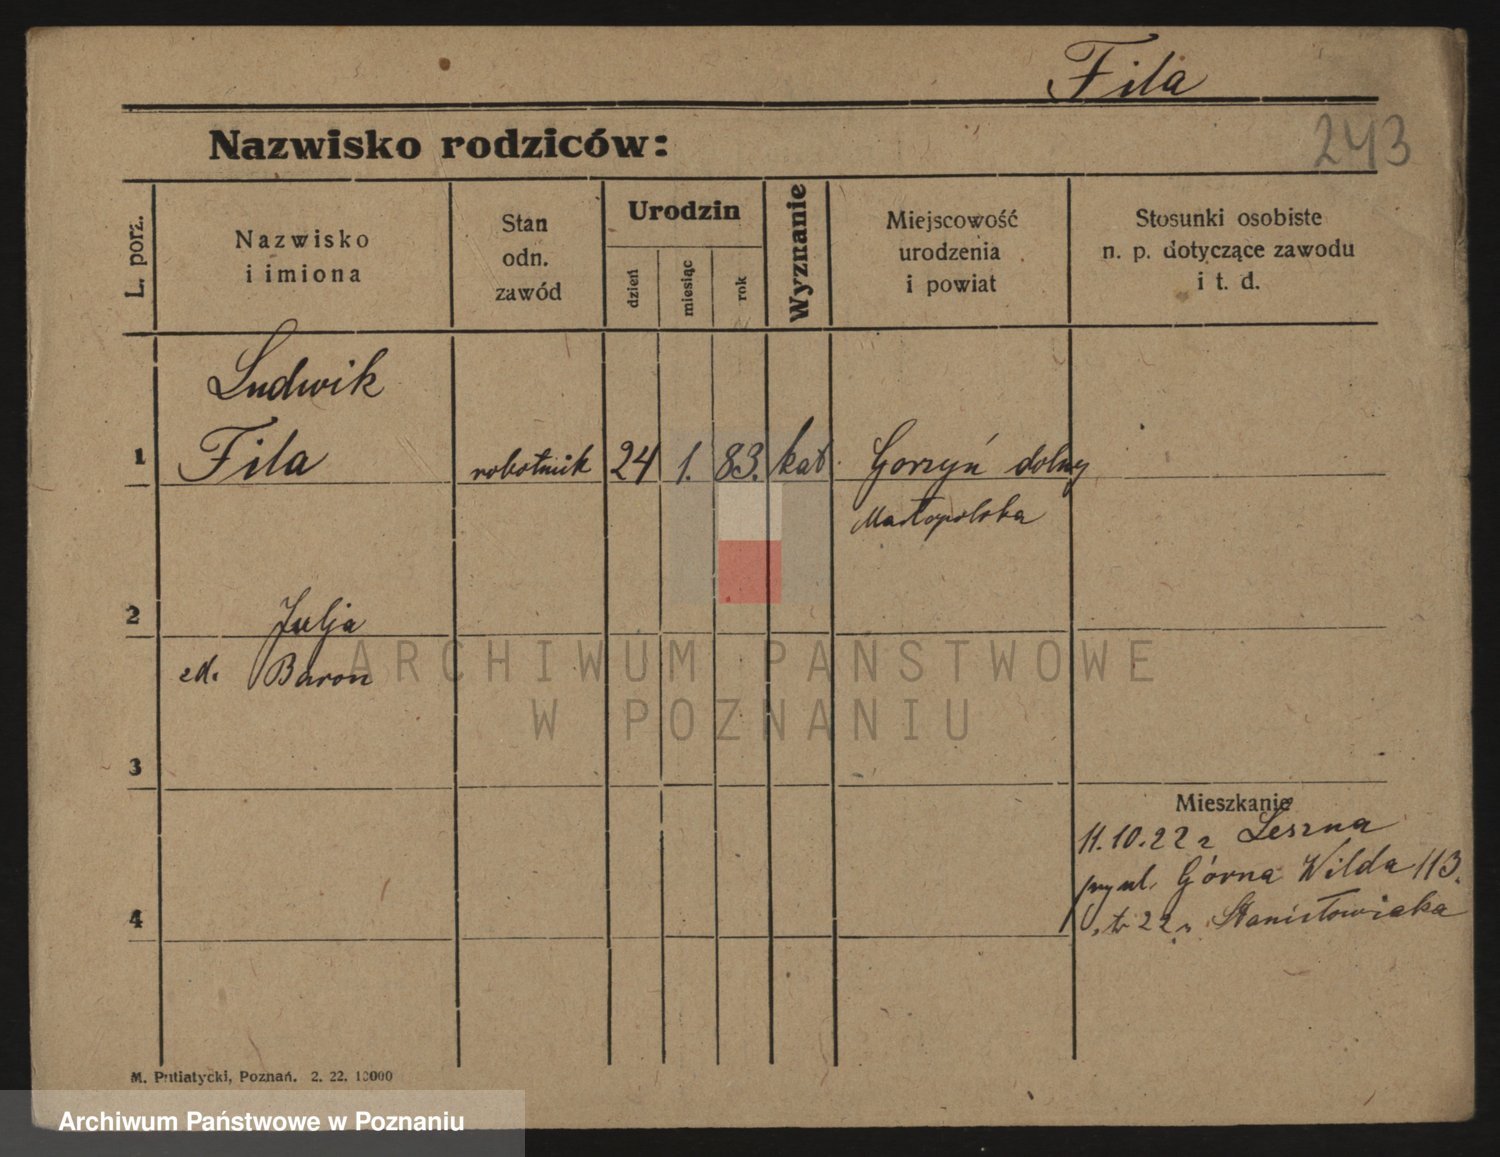 Fila
Nazwisko rodziców:
243
L. porz.
Nazwisko
i imiona
Stan
odn.
zawód
Urodzin
dzień
miesiąc
rok
Wyznanie
Miejscowość
urodzenia
i powiat
Stosunki osobiste
n. p. dotyczące zawodu
i t. d.
Ludwik
1 Fila robotnik 24 1. 83. kat. Gorzyń dolny
Małopolska
2 Julja
zd. Baron
ARCHIWUM PAŃSTWOWE
W POZNANIU
3
Mieszkanie
11.10.22 z Leszna
przy ul. Górna Wilda 113.
4
22 Stanisławiaka
M. Putiatycki, Poznań. 2. 22. 10000
Archiwum Państwowe w Poznaniu